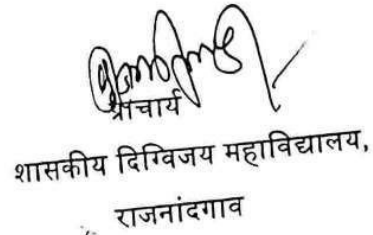 प्राचार्य
शासकीय दिग्विजय महाविद्यालय,
राजनांदगाव